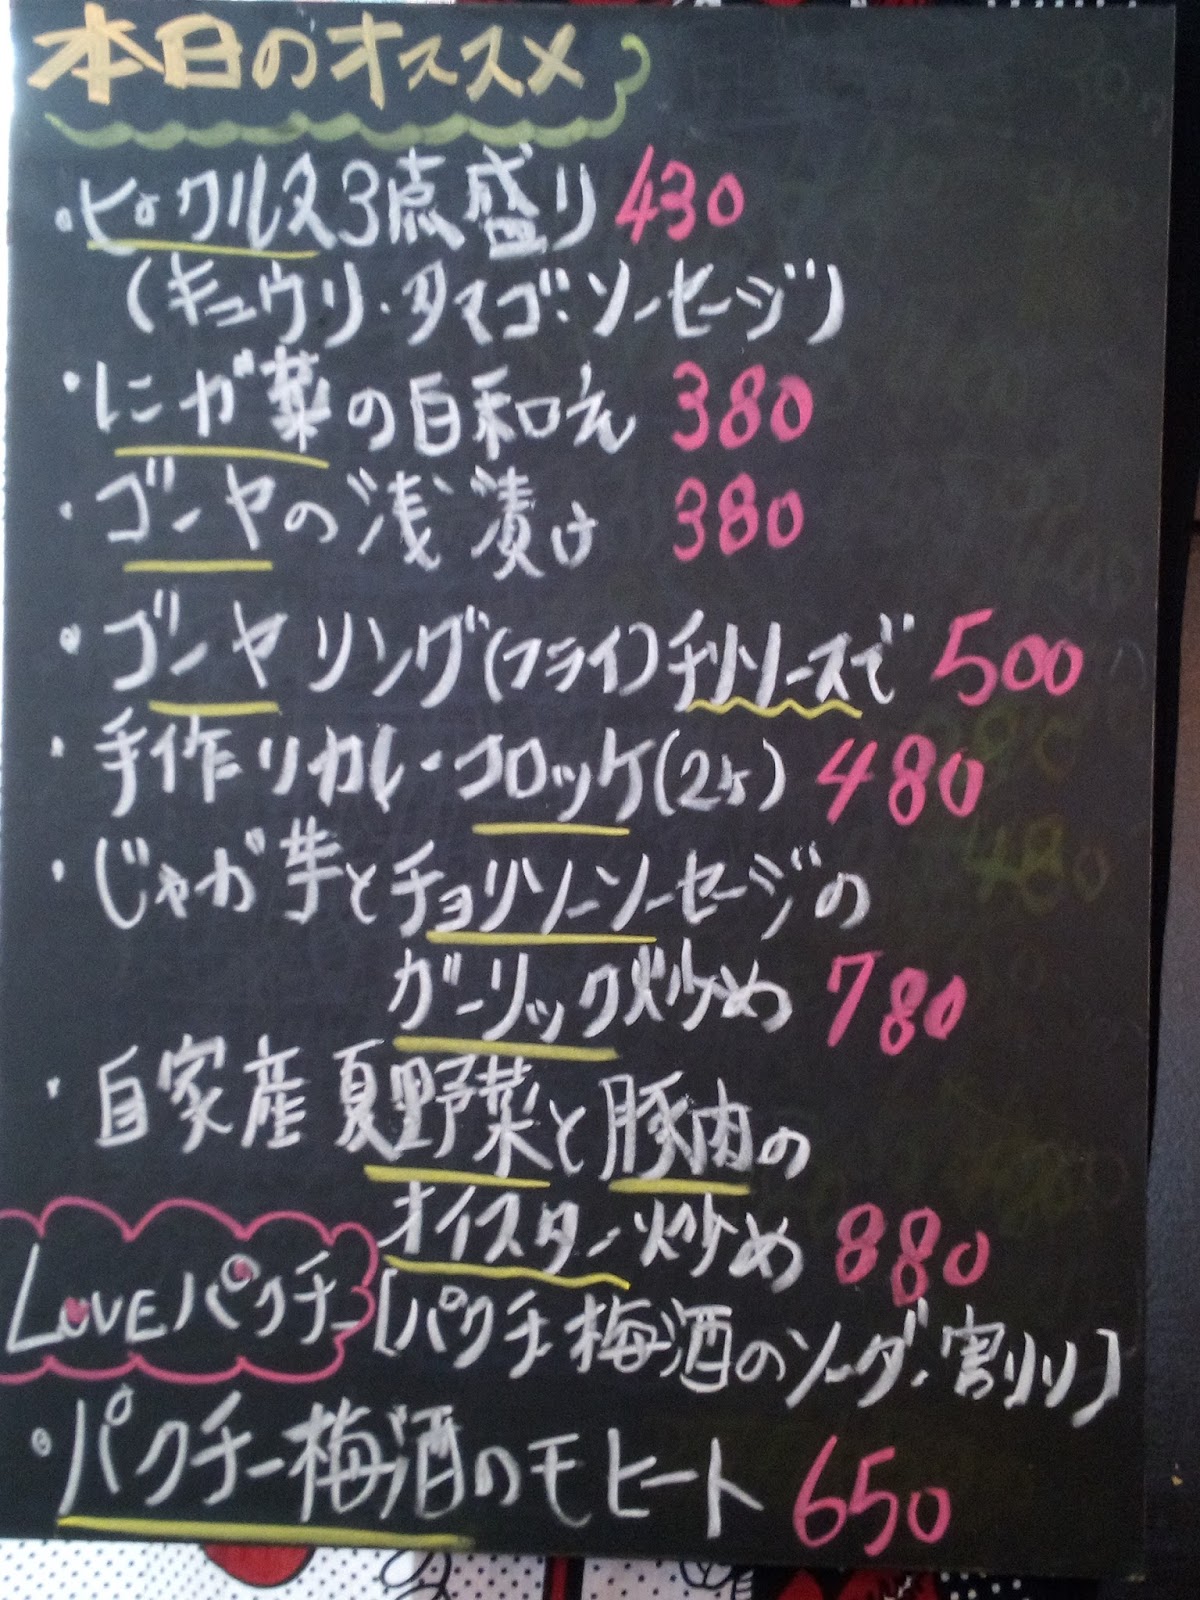 本日のオススメ
・ピクルス3点盛り 430
(キュウリ・タマゴ・ソーセージ)
・にが菜の白和え 380
・ゴーヤの浅漬け 380
・ゴーヤリング(フライ)チリソースで 500
・手作りカレーコロッケ(2ヶ) 480
・じゃが芋とチョリソーソーセージの
ガーリック炒め 780
・自家産夏野菜と豚肉の
オイスター炒め 880
LOVEパクチー [パクチー梅酒のソーダ割り]
・パクチー梅酒のモヒート 650